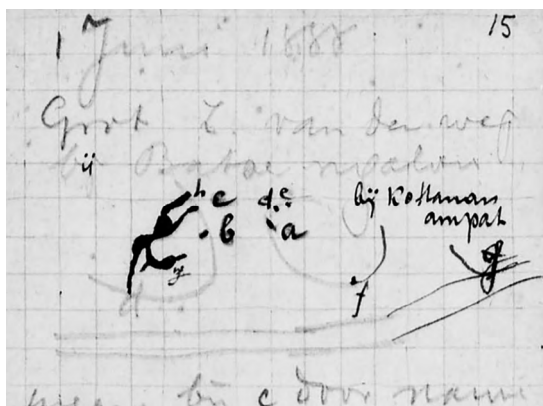 15
1 Juni 1888
Grot Z. van den weg
bij Batoe
h c d e bij Kottanan
b a ampat
g g
f
d
bij c door